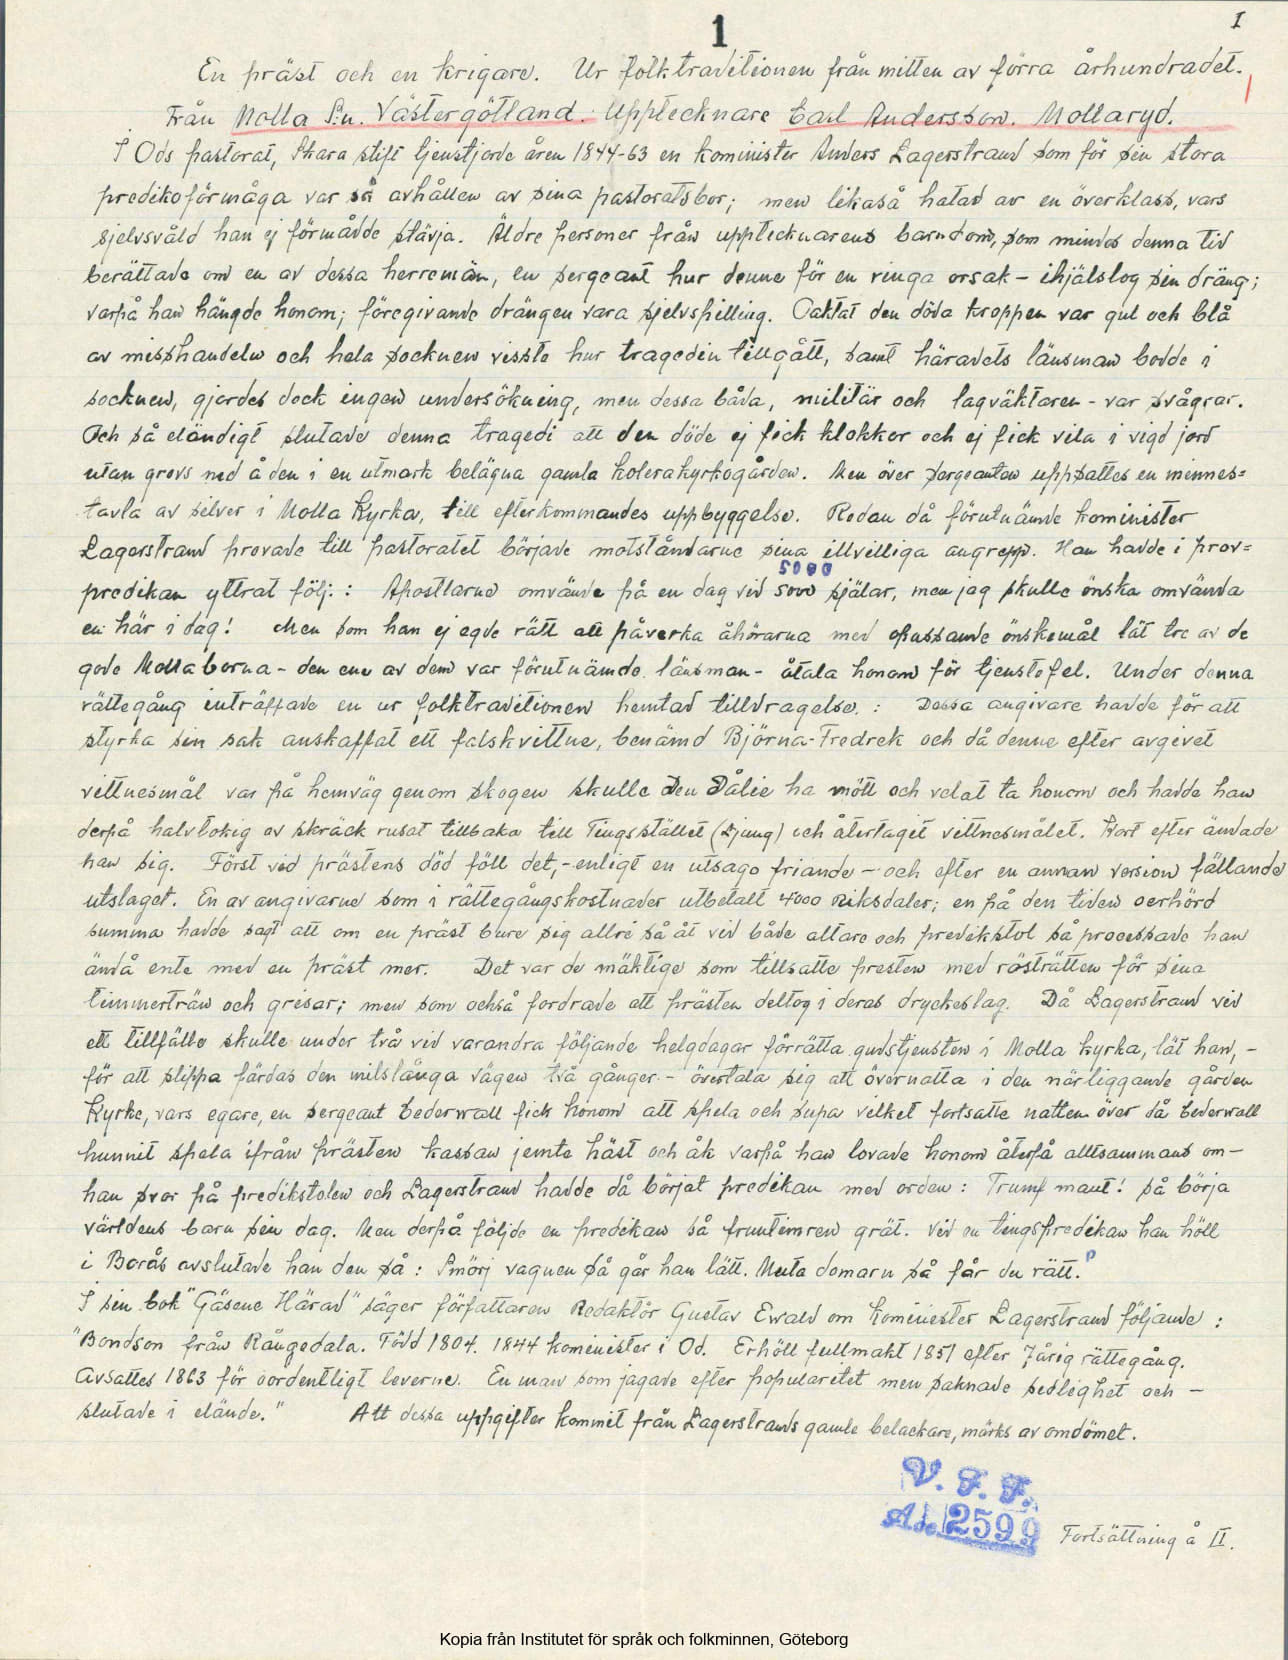 1
I
En präst och en krigare. Ur folktraditionen från mitten av förra århundradet.
Från Molla S:n. Västergötland. Upptecknare Carl Andersson. Mollaryd.
I Ods pastorat, Skara stift tjenstjorde åren 1844-63 en kominister Anders Lagerstrand som för sin stora
predikoförmåga var så avhållen av sina pastoratsbor; men likaså hatad av en överklass, vars
sjelvsvåld han ej förmådde stävja. Äldre personer från upptecknarens barndom, som mindes denna tid
berättade om en av dessa herremän, en sergeant hur denne för en ringa orsak - ihjälslog sin dräng;
varpå han hängde honom; föregivande drängen vara sjelvspilling. Oaktat den döda kroppen var gul och blå
av misshandeln och hela socknen visste hur tragedin tillgått, samt häradets länsman bodde i
socknen, gjordes dock ingen undersökning, men dessa båda, militär och lagväktaren - var svågrar.
Och så eländigt slutade denna tragedi att den döde ej fick klokker och ej fick vila i vigd jord
utan grovs ned å den i en utmark belägna gamla kolerakyrkogården. Men över sergeanten uppsattes en minnes=
tavla av silver i Molla Kyrka, till efterkommandes uppbyggelse. Redan då förutnämde kominister
Lagerstrand provade till pastoratet började motståndarne sina illvilliga angrepp. Han hade i prov=
5000
predikan yttrat följ.: Apostlarne omvände på en dag vid 5000 själar, men jag skulle önska omvända
en här i dag! Men som han ej egde rätt att påverka åhörarna med opassande önskemål lät tre av de
gode Mollaborna - den ene av dem var förutnämde länsman - åtala honom för tjenstefel. Under denna
rättegång inträffade en ur folktraditionen hemtad tilldragelse.: Dessa angivare hade för att
styrka sin sak anskaffat ett falskvittne, benämd Björna-Fredrek och då denne efter avgivet
vittnesmål var på hemväg genom skogen skulle Den Dålie ha mött och velat ta honom och hade han
derpå halvtokig av skräck rusat tillbaka till Tingsstället (Ljung) och återtagit vittnesmålet. Kort efter ändade
han sig. Först vid prästens död föll det, - enligt en utsago friande - och efter en annan version fällande
utslaget. En av angivarne som i rättegångskostnader utbetalt 4000 Riksdaler; en på den tiden oerhörd
summa hade sagt att om en präst bure sig allri så åt vid både altare och predikstol så processade han
ändå ente med en präst mer. Det var de mäktige som tillsatte presten med rösträtten för sina
timmerträn och grisar; men som också fordrade att prästen deltog i deras dryckeslag. Då Lagerstrand vid
ett tillfälle skulle under två vid varandra följande helgdagar förrätta gudstjensten i Molla kyrka, lät han, -
för att slippa färdas den milslånga vägen två gånger - övertala sig att övernatta i den närliggande gården
Kyrke, vars egare, en sergeant Cederwall fick honom att spela och supa vilket fortsatte natten över då Cederwall
hunnit spela ifrån prästen kassan jemte häst och åk varpå han lovade honom återfå alltsammans om -
han svor på predikstolen och Lagerstrand hade då börjat predikan med orden: Trumf mant! så börja
världens barn sin dag. Men derpå följde en predikan så fruntimren grät. Vid en tingspredikan han höll
i Borås avslutade han den så: Smörj vagnen så går han lätt. Muta domarn så får du rätt.
I sin bok "Gäsene Härad" säger författaren Redaktör Gustav Ewald om kominister Lagerstrand följande:
"Bondson från Rångedala. Född 1804. 1844 kominister i Od. Erhöll fullmakt 1851 efter 7årig rättegång.
Avsattes 1863 för oordentligt leverne. En man som jagade efter popularitet men saknade sedlighet och -
slutade i elände." Att dessa uppgifter kommit från Lagerstrands gamle belackare, märks av omdömet.
V. F. F.
Ac. 2599
Fortsättning å II.
Kopia från Institutet för språk och folkminnen, Göteborg